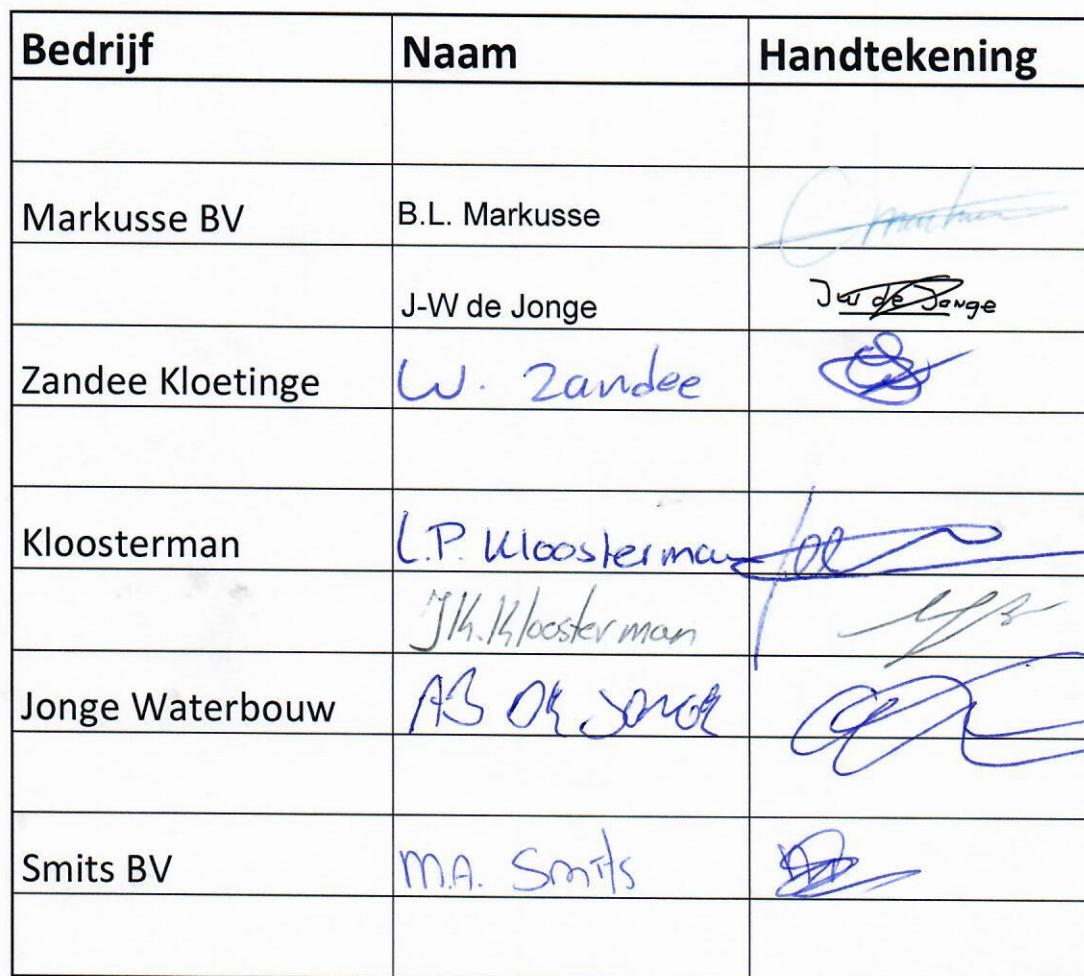 Bedrijf Naam Handtekening
Markusse BV B.L. Markusse
J-W de Jonge JW de Jonge
Zandee Kloetinge W. Zandee
Kloosterman L.P. Kloosterman
J.K. Kloosterman
Jonge Waterbouw AB de Jonge
Smits BV M.A. Smits